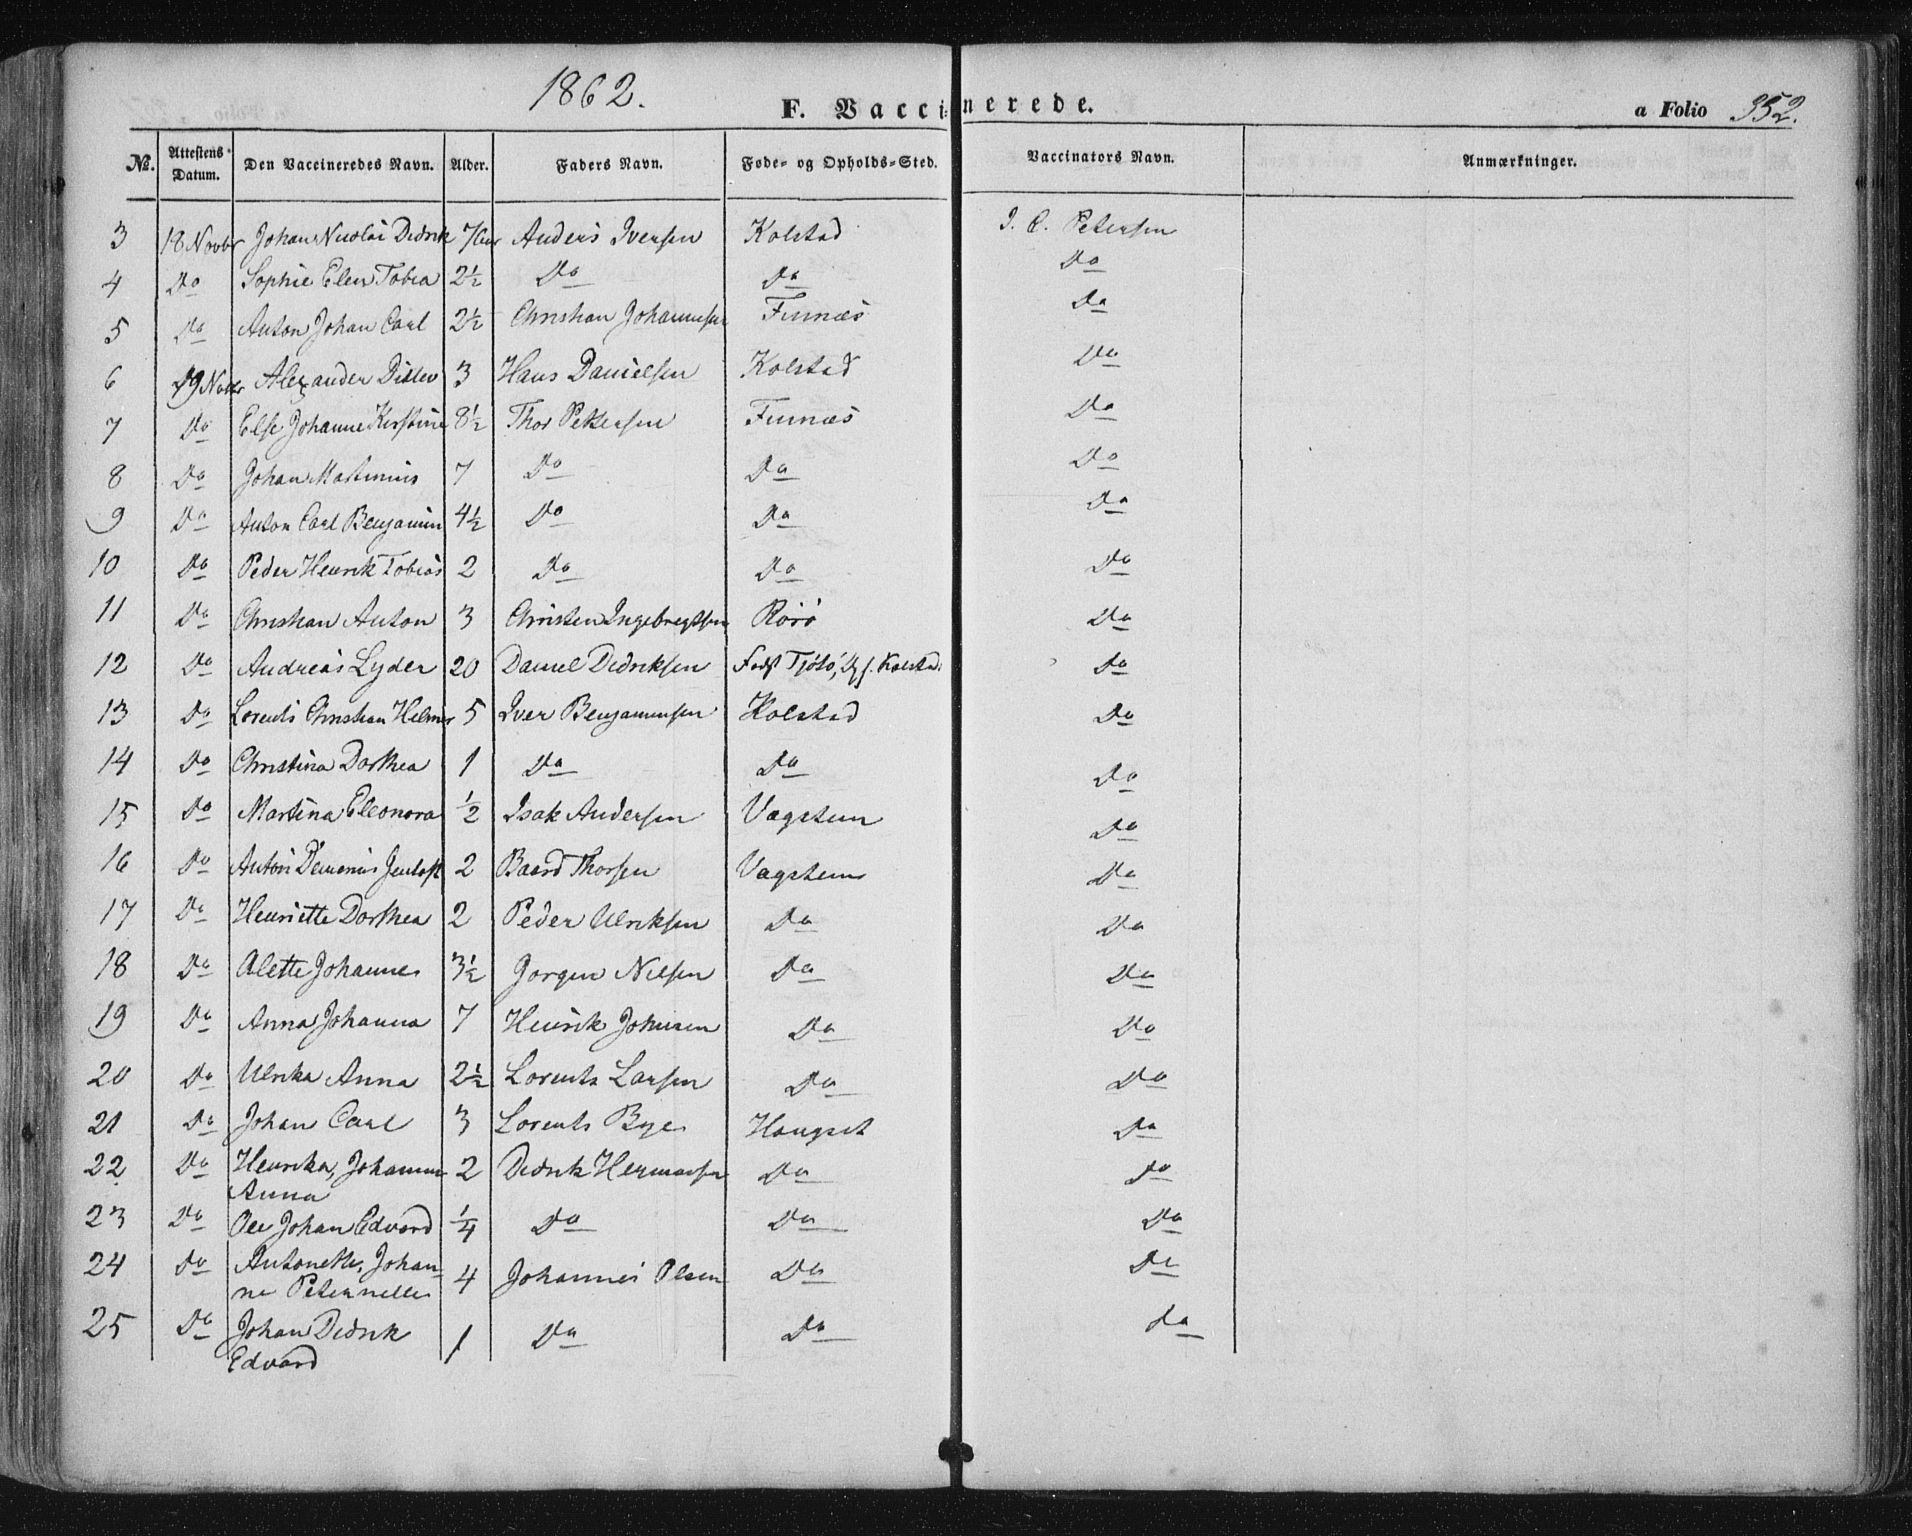 1862.
F. Vaccinerede.
a Folio 352.
No. | Attestens Datum. | Den Vaccineredes Navn. | Alder. | Faders Navn. | Føde- og Opholds-Sted. | Vaccinators Navn. | Anmærkninger.
3 | 18 Novbr | Johan Nicolai Didrik | 7 | Anders Iversen | Kolstad | I. C. Petersen
4 | Do | Sophie Elen Tobia | 2½ | Do | Do | Do
5 | Do | Anton Johan Carl | 2½ | Christian Johannsen | Finnæs | Do
6 | 19 Novbr | Alexander Ditlev | 3 | Hans Danielsen | Kolstad | Do
7 | Do | Else Johanne Kirstine | 8½ | Thor Pettersen | Finnæs | Do
8 | Do | Johan Martinius | 7 | Do | Do | Do
9 | Do | Anton Carl Benjamin | 4½ | Do | Do | Do
10 | Do | Peder Henrik Tobias | 2 | Do | Do | Do
11 | Do | Christian Anton | 3 | Christen Ingebregtsen | Rörö | Do
12 | Do | Andreas Lyder | 20 | Daniel Didriksen | Født Tjötö, Kolstad | Do
13 | Do | Lorents Christian Helmer | 5 | Iver Benjaminsen | Kolstad | Do
14 | Do | Christina Dorthea | 1 | Do | Do | Do
15 | Do | Martina Eleonora | ½ | Isak Andersen | Vagstein | Do
16 | Do | Anton | 2 | Baard Thorsen | Vagstein | Do
17 | Do | Henriette Dorthea | 2 | Peder Ulriksen | Do | Do
18 | Do | Alette Johanne | 3½ | Jørgen Nilsen | Do | Do
19 | Do | Anna Johanna | 7 | Henrik Johnsen | Do | Do
20 | Do | Ulrika Anna | 2½ | Lorents Larsen | Do | Do
21 | Do | Johan Carl | 3 | Lorents Bye | Haugset | Do
22 | Do | Henrika, Johanna | 2 | Didrik Hermansen | Do | Do
Anna
23 | Do | Ole Johan Edvard | ¼ | Do | Do | Do
24 | Do | Antonette, Johan- | 4 | Johannes Olsen | Do | Do
ne Peternelle
25 | Do | Johan Didrik | 1 | Do | Do | Do
Edvard